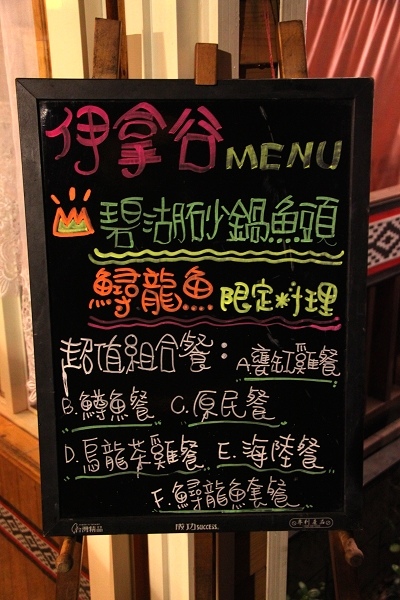 伊拿谷 MENU
碧湖砂鍋魚頭
鱘龍魚 限定料理
超值組合餐: A.甕缸雞餐
B.鱒魚餐 C.原民餐
D.烏龍茶雞餐 E.海陸餐
F.鱘龍魚套餐
台灣精品 成功SUCCESS. 專利產品